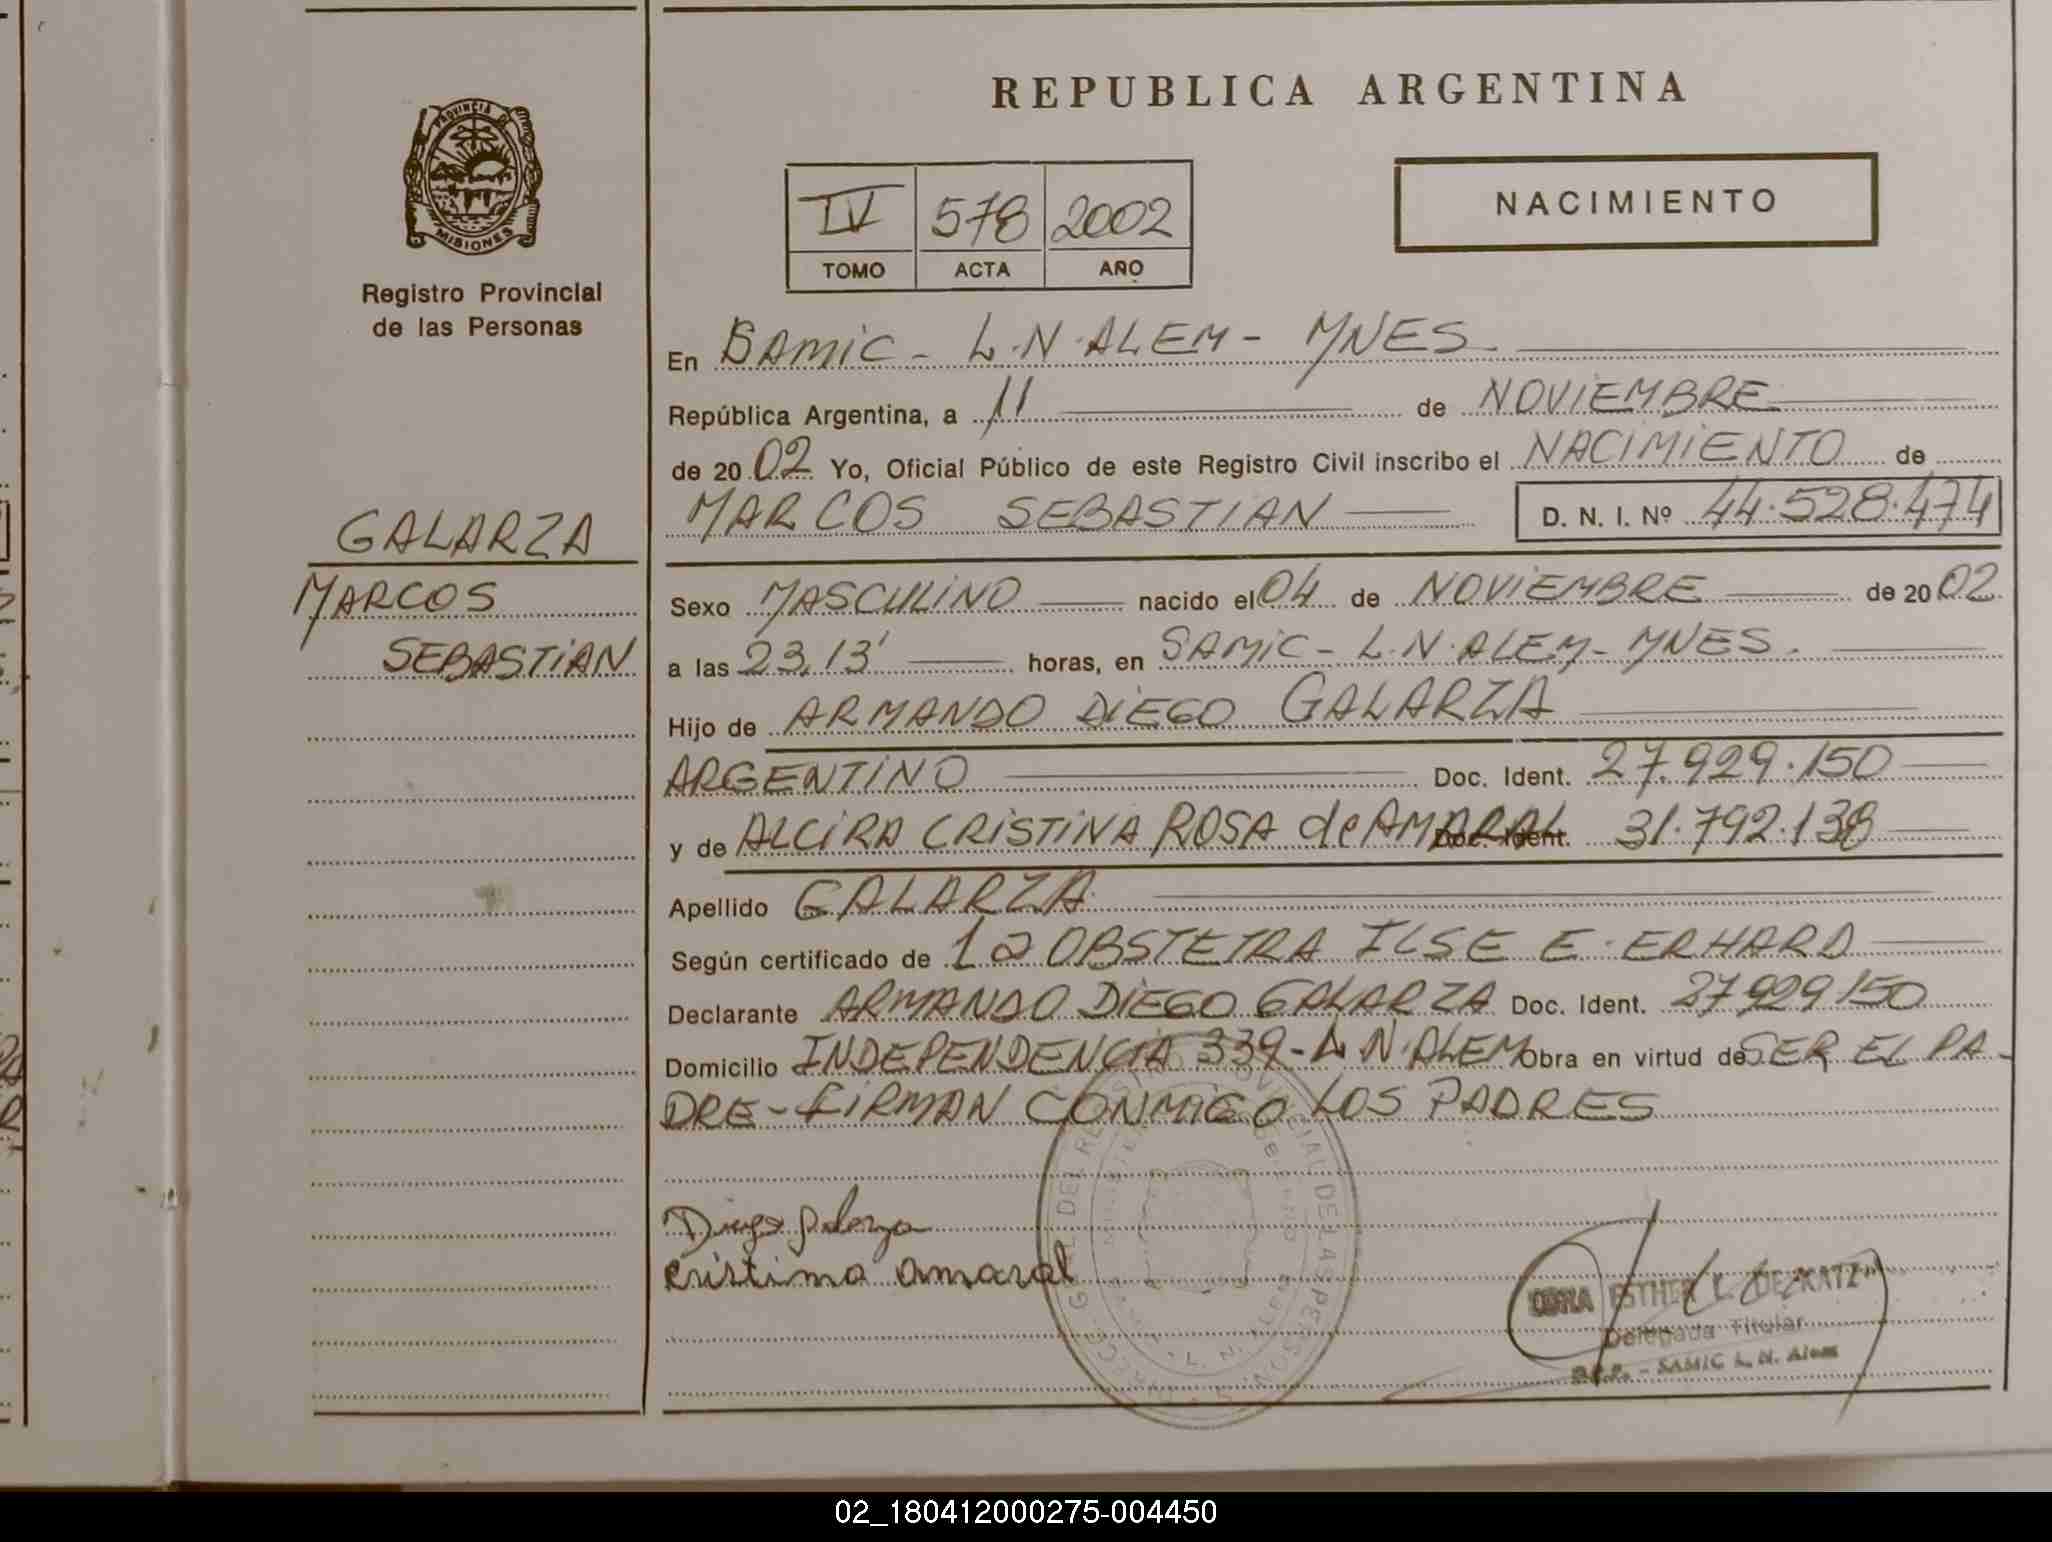 REPUBLICA ARGENTINA
PROVINCIA DE
MISIONES
Registro Provincial
de las Personas
IV 578 2002
TOMO ACTA AÑO
NACIMIENTO
En SAMIC - L.N.ALEM - MNES.
República Argentina, a 11 de NOVIEMBRE
de 20 02 Yo, Oficial Público de este Registro Civil inscribo el NACIMIENTO de
MARCOS SEBASTIAN D. N. I. Nº 44.528.474
GALARZA
MARCOS
SEBASTIAN
Sexo MASCULINO nacido el 04 de NOVIEMBRE de 20 02
a las 23,13' horas, en SAMIC - L.N.ALEM - MNES.
Hijo de ARMANDO DIEGO GALARZA
ARGENTINO Doc. Ident. 27.929.150
y de ALCIRA CRISTINA ROSA de AMARAL Doc. Ident. 31.792.138
Apellido GALARZA
Según certificado de la OBSTETRA ILSE E. ERHARD
Declarante ARMANDO DIEGO GALARZA Doc. Ident. 27929150
Domicilio INDEPENDENCIA 339 - L N.ALEM Obra en virtud de SER EL PA-
DRE - FIRMAN CONMIGO LOS PADRES
Diego Galarza
Cristina Amaral
ESTHER L. DE KATZ
Delegada Titular
SAMIC L. N. Alem
02_180412000275-004450